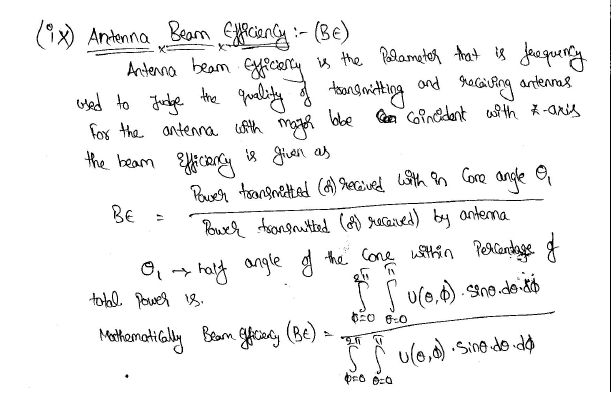 (ix) Antenna Beam Efficiency :- (BE)
Antenna beam efficiency is the Parameter that is frequency
used to Judge the quality of transmitting and receiving antennas
For the antenna with major lobe coincident with z-axis
the beam Efficiency is given as
BE = Power transmitted (or) received with in Cone angle θ₁ / Power transmitted (or) received) by antenna
θ₁ → half angle of the Cone within Percentage of
total Power is.
Mathematically Beam efficiency (BE) = ∫_{φ=0}^{2π} ∫_{θ=0}^{π} U(θ,φ) · Sinθ.dθ.dφ / ∫_{φ=0}^{2π} ∫_{θ=0}^{π} U(θ,φ) · Sinθ.dθ.dφ